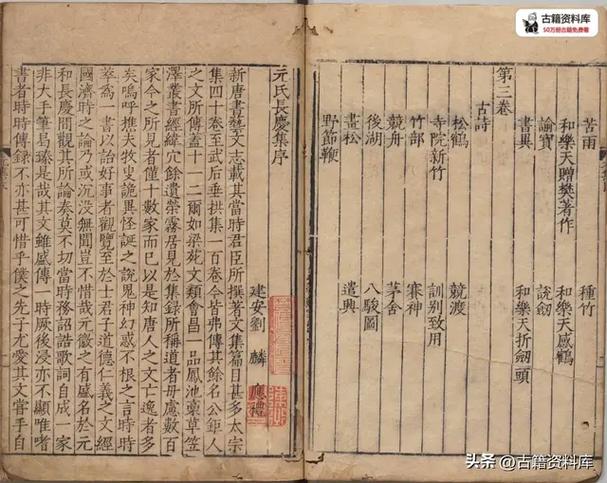 苦雨 種竹
和樂天贈樊著作 和樂天感鶴
諭寶 說劒
書異 和樂天折劒頭
第三卷
古詩
松鶴 競渡
寺院新竹 訓別致用
竹部 賽神
競舟 茅舍
後湖 八駿圖
畫松 遣興
野節鞭
元氏長慶集序
建安劉 麟 應禮
新唐書蓺文志載其當時君臣所撰著文集篇目甚多太宗
集四十卷至武后垂拱集一百卷今皆弗傳其餘名公鉅人
之文所傳蓋十一二爾如梁苑文類會昌一品鳳池藁草笠
澤叢書經緯穴餘遺榮霧居見於集錄所稱道者毋慮數百
家今之所見者僅十數家而已以是知唐人之文亡逸者多
矣嗚呼樵夫牧叟詭異怪誕之說鬼神幻惑不根之言時時
萃為一書以詒好事者觀覽至於士君子道德仁義之文經
國濟時之論乃或沉没無聞豈不惜哉元微之有盛名於元
和長慶間觀其所論奏莫不切當時務詔誥歌詞自成一家
非大手筆曷臻是哉其文雖盛傳一時厥後浸亦不顯唯嗜
書者時時傳錄不亦甚可惜乎僕之先子尤愛其文嘗手自
古籍资料库
50万部古籍免费看
头条 @古籍资料库